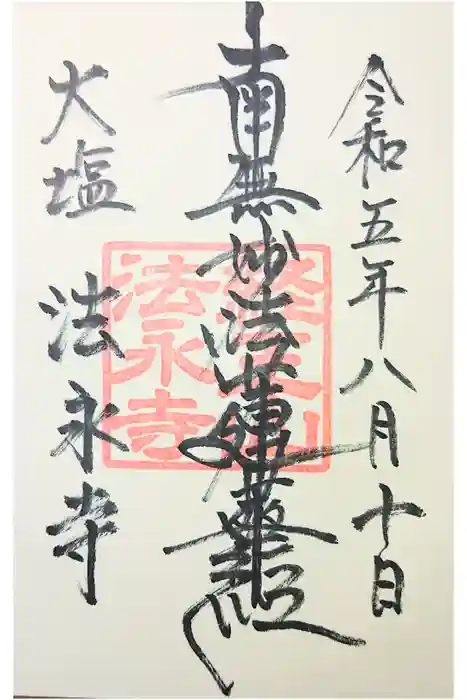 令和五年八月十日
南無妙法蓮華経
大塩 法永寺
経王山
法永寺